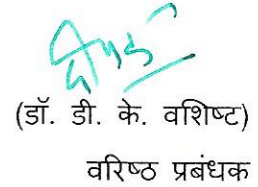 (डॉ. डी. के. वशिष्ट)
वरिष्ठ प्रबंधक